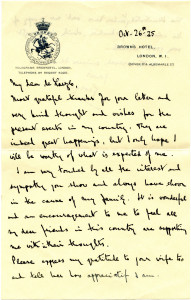 Oct. 26th 35
BROWN'S HOTEL,
LONDON, W.1.
DOVER ST & ALBEMARLE ST
TELEGRAPHIC ADDRESS
TELEPHONE Nº REGENT
My dear
Most grateful thanks for your letter and
very kind thought and wishes for the
present events in my country. They are
indeed great happenings, but I only hope I
will be worthy of what is expected of me.
I am very touched by all the interest and
sympathy you show and always have shown
in the cause of my family. It is wonderful
and an encouragement to me to feel all
my dear friends in this country are supporting
me with their thoughts.
Please express my gratitude to your wife too
and tell her how appreciative I am.